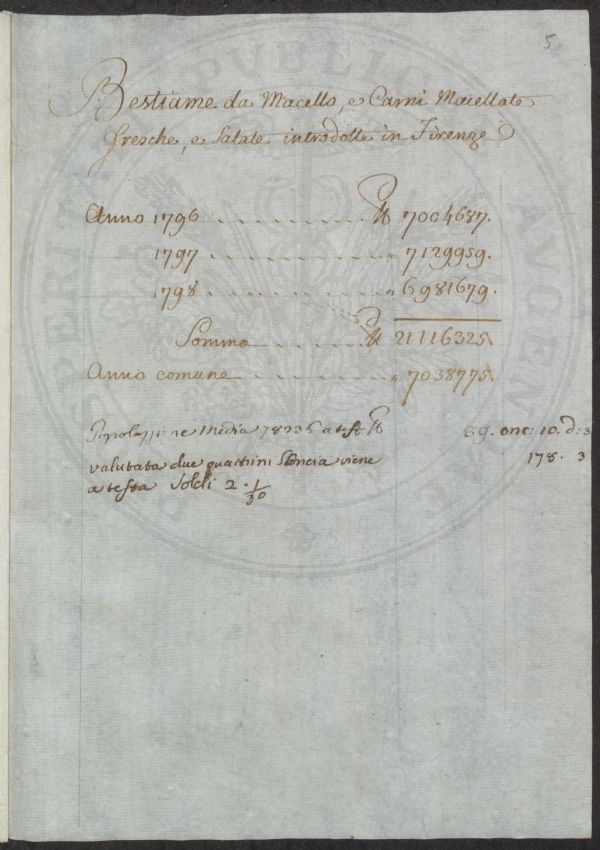 5.
Bestiame da Macello, e Carni Macellate
fresche, e Salate introdotte in Firenze
Anno 1796 . . . . . . . . ℔ 7004687.
1797 . . . . . . . . . „ 7129959.
1798 . . . . . . . . . „ 6981679.
Somma . . . . . . ℔ 21116325.
Anno comune . . . . . . . „ 7038775.
Popolazione Media 78235 a testa ℔ 89. onc: 10. d: 3
valutata due quattrini l'oncia viene 178. 3
a testa Soldi 2. 1/30